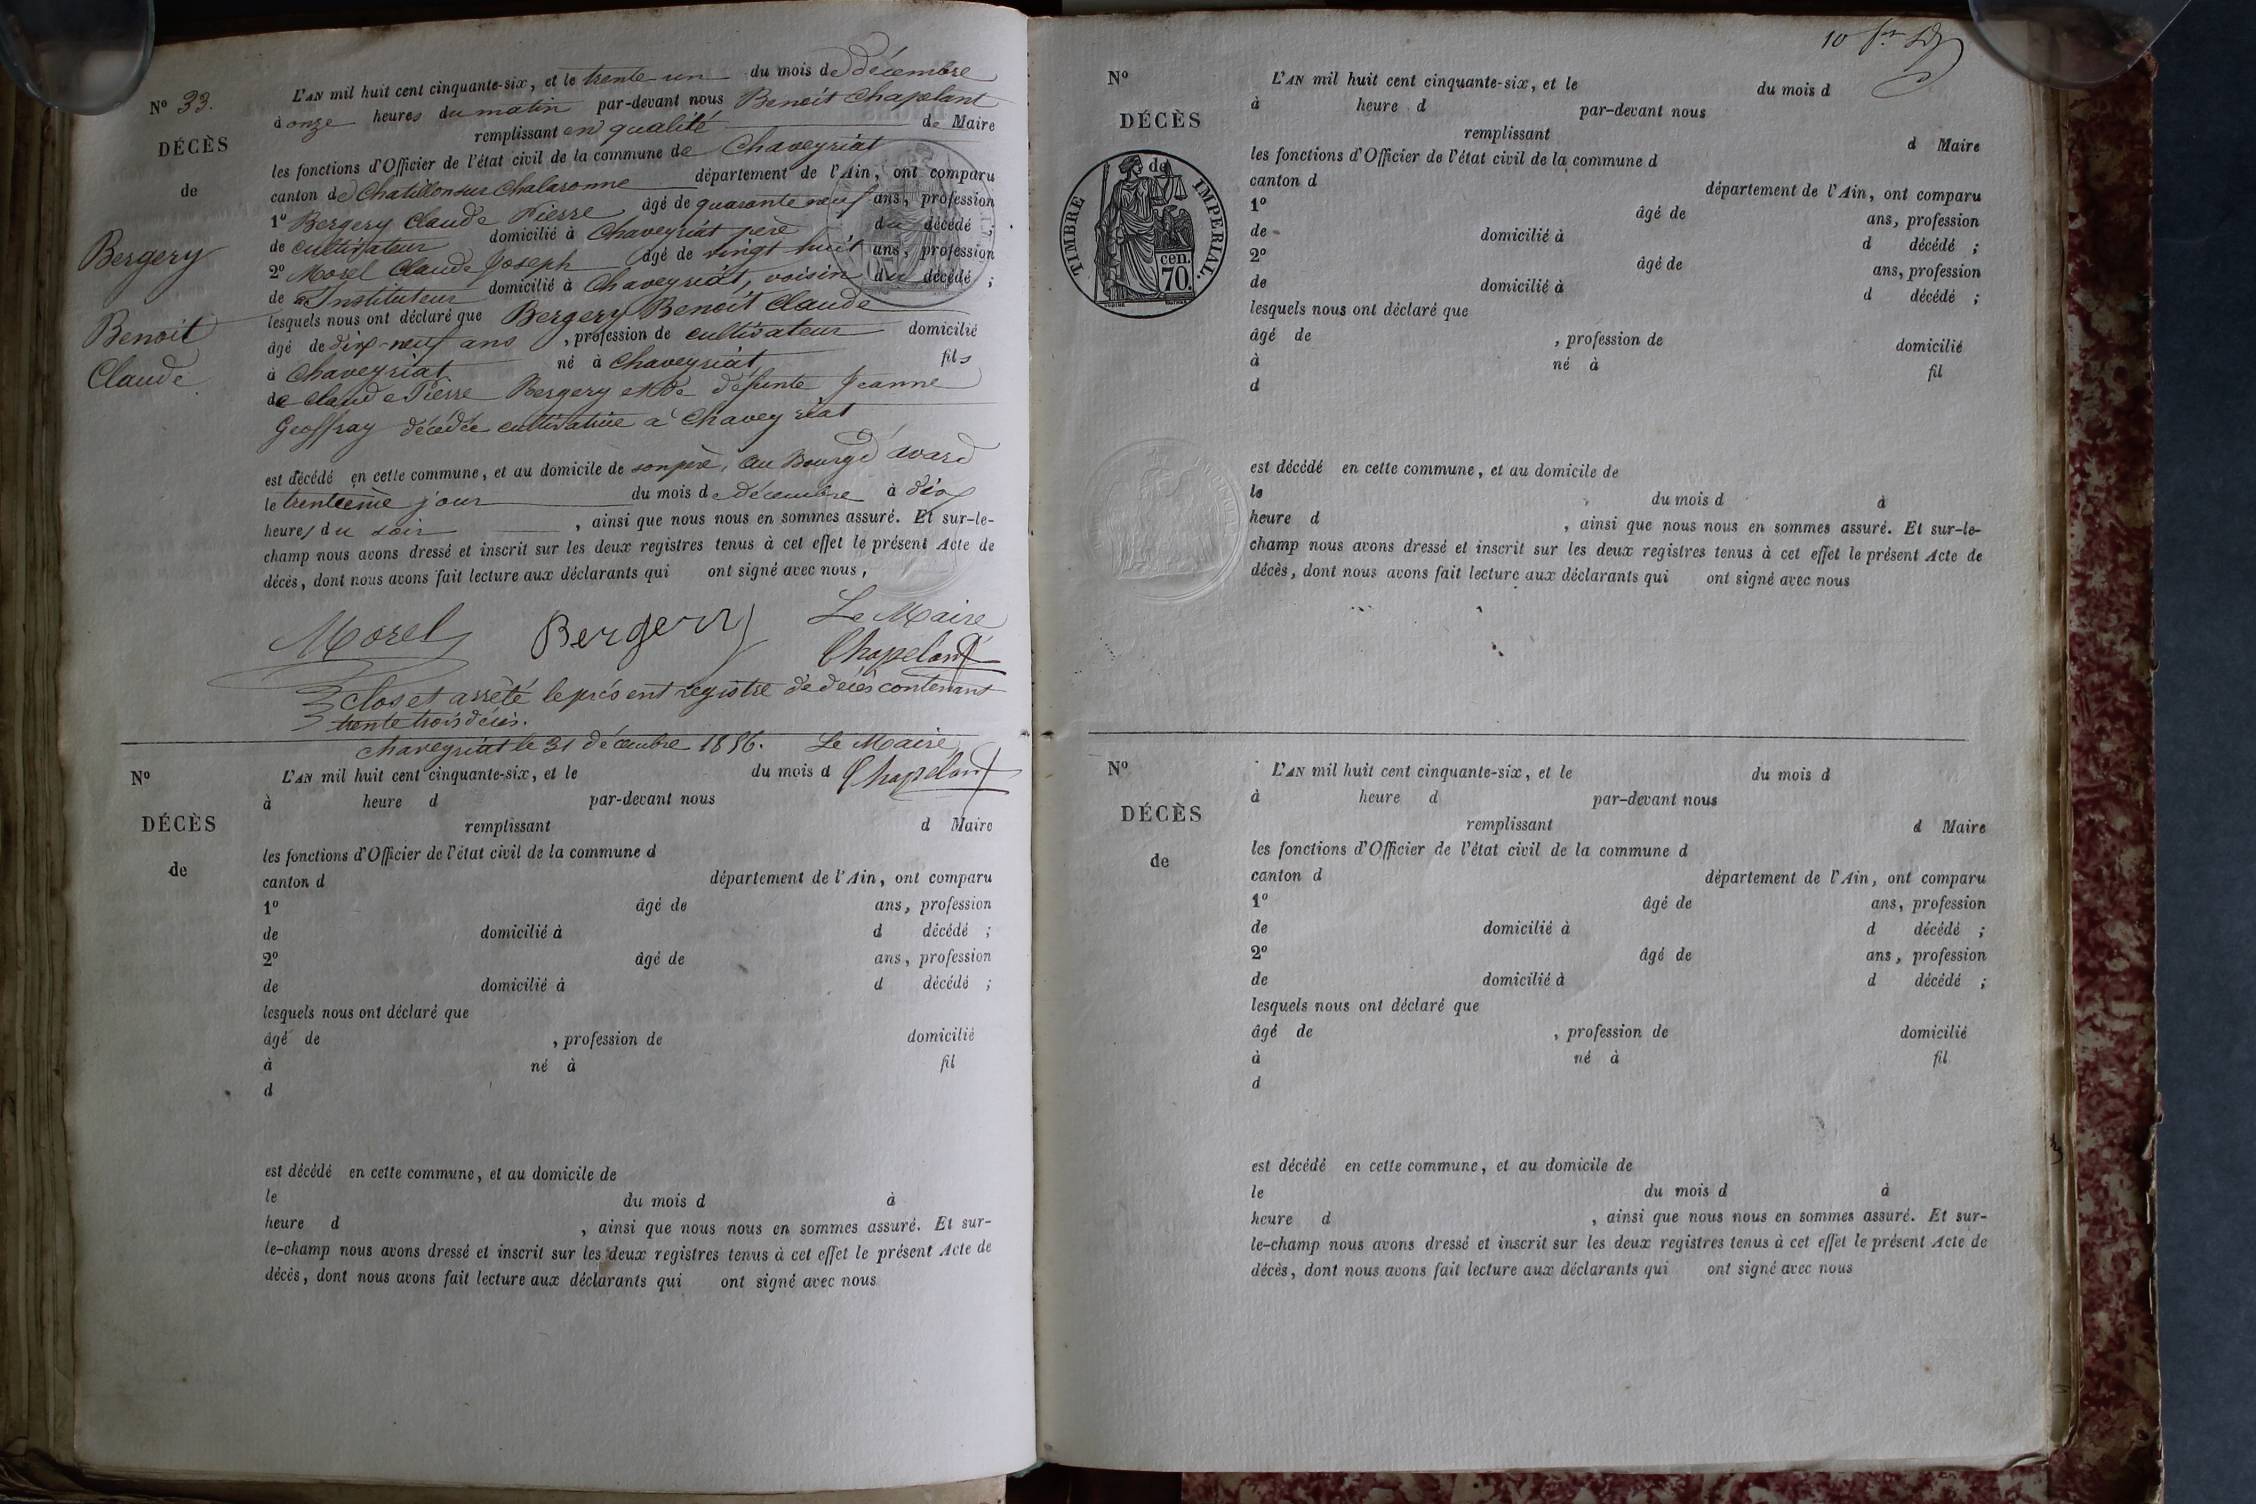 N° 33.
DÉCÈS
de
Bergery
Benoit
Claude
L'AN mil huit cent cinquante-six, et le trente un du mois de décembre
à onze heures du matin par-devant nous Benoit Chapelant
remplissant en qualité de Maire
les fonctions d'Officier de l'état civil de la commune de Chaveyriat
canton de Chatillon sur Chalaronne département de l'Ain, ont comparu
1° Bergery Claude Pierre âgé de quarante neuf ans, profession
de cultivateur domicilié à Chaveyriat père du décédé ;
2° Morel Claude Joseph âgé de vingt huit ans, profession
de Instituteur domicilié à Chaveyriat, voisin du décédé ;
lesquels nous ont déclaré que Bergery Benoit Claude
âgé de dix-neuf ans , profession de cultivateur domicilié
à Chaveyriat né à Chaveyriat fils
de Claude Pierre Bergery et de défunte Jeanne
Geoffray décédée cultivatrice à Chaveyriat
est décédé en cette commune, et au domicile de son père, au Bourg
le trentième jour du mois de décembre à dix
heures du soir , ainsi que nous nous en sommes assuré. Et sur-le-
champ nous avons dressé et inscrit sur les deux registres tenus à cet effet le présent Acte de
décès, dont nous avons fait lecture aux déclarants qui ont signé avec nous,
Morel Bergery Le Maire
Chapelant
Clos et arrêté le présent registre de décès contenant
trente trois décès.
Chaveyriat le 31 décembre 1856. Le Maire
Chapelant
N°
DÉCÈS
de
L'AN mil huit cent cinquante-six, et le du mois d
à heure d par-devant nous
remplissant d Maire
les fonctions d'Officier de l'état civil de la commune d
canton d département de l'Ain, ont comparu
1° âgé de ans, profession
de domicilié à d décédé ;
2° âgé de ans, profession
de domicilié à d décédé ;
lesquels nous ont déclaré que
âgé de , profession de domicilié
à né à fil
d
est décédé en cette commune, et au domicile de
le du mois d à
heure d , ainsi que nous nous en sommes assuré. Et sur-
le-champ nous avons dressé et inscrit sur les deux registres tenus à cet effet le présent Acte de
décès, dont nous avons fait lecture aux déclarants qui ont signé avec nous
N°
DÉCÈS
TIMBRE IMPÉRIAL.
de
cen.
70.
L'AN mil huit cent cinquante-six, et le du mois d
à heure d par-devant nous
remplissant d Maire
les fonctions d'Officier de l'état civil de la commune d
canton d département de l'Ain, ont comparu
1° âgé de ans, profession
de domicilié à d décédé ;
2° âgé de ans, profession
de domicilié à d décédé ;
lesquels nous ont déclaré que
âgé de , profession de domicilié
à né à fil
d
est décédé en cette commune, et au domicile de
le du mois d à
heure d , ainsi que nous nous en sommes assuré. Et sur-le-
champ nous avons dressé et inscrit sur les deux registres tenus à cet effet le présent Acte de
décès, dont nous avons fait lecture aux déclarants qui ont signé avec nous
N°
DÉCÈS
de
L'AN mil huit cent cinquante-six, et le du mois d
à heure d par-devant nous
remplissant d Maire
les fonctions d'Officier de l'état civil de la commune d
canton d département de l'Ain, ont comparu
1° âgé de ans, profession
de domicilié à d décédé ;
2° âgé de ans, profession
de domicilié à d décédé ;
lesquels nous ont déclaré que
âgé de , profession de domicilié
à né à fil
d
est décédé en cette commune, et au domicile de
le du mois d à
heure d , ainsi que nous nous en sommes assuré. Et sur-
le-champ nous avons dressé et inscrit sur les deux registres tenus à cet effet le présent Acte de
décès, dont nous avons fait lecture aux déclarants qui ont signé avec nous